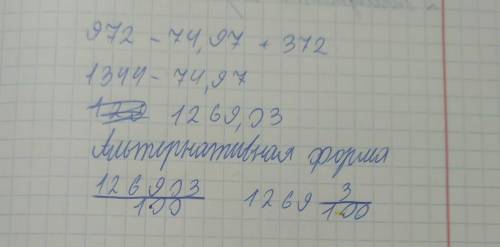 972 - 74,97 + 372
1344 - 74,97
1269,03
Альтернативная форма
126903/100 1269 3/100